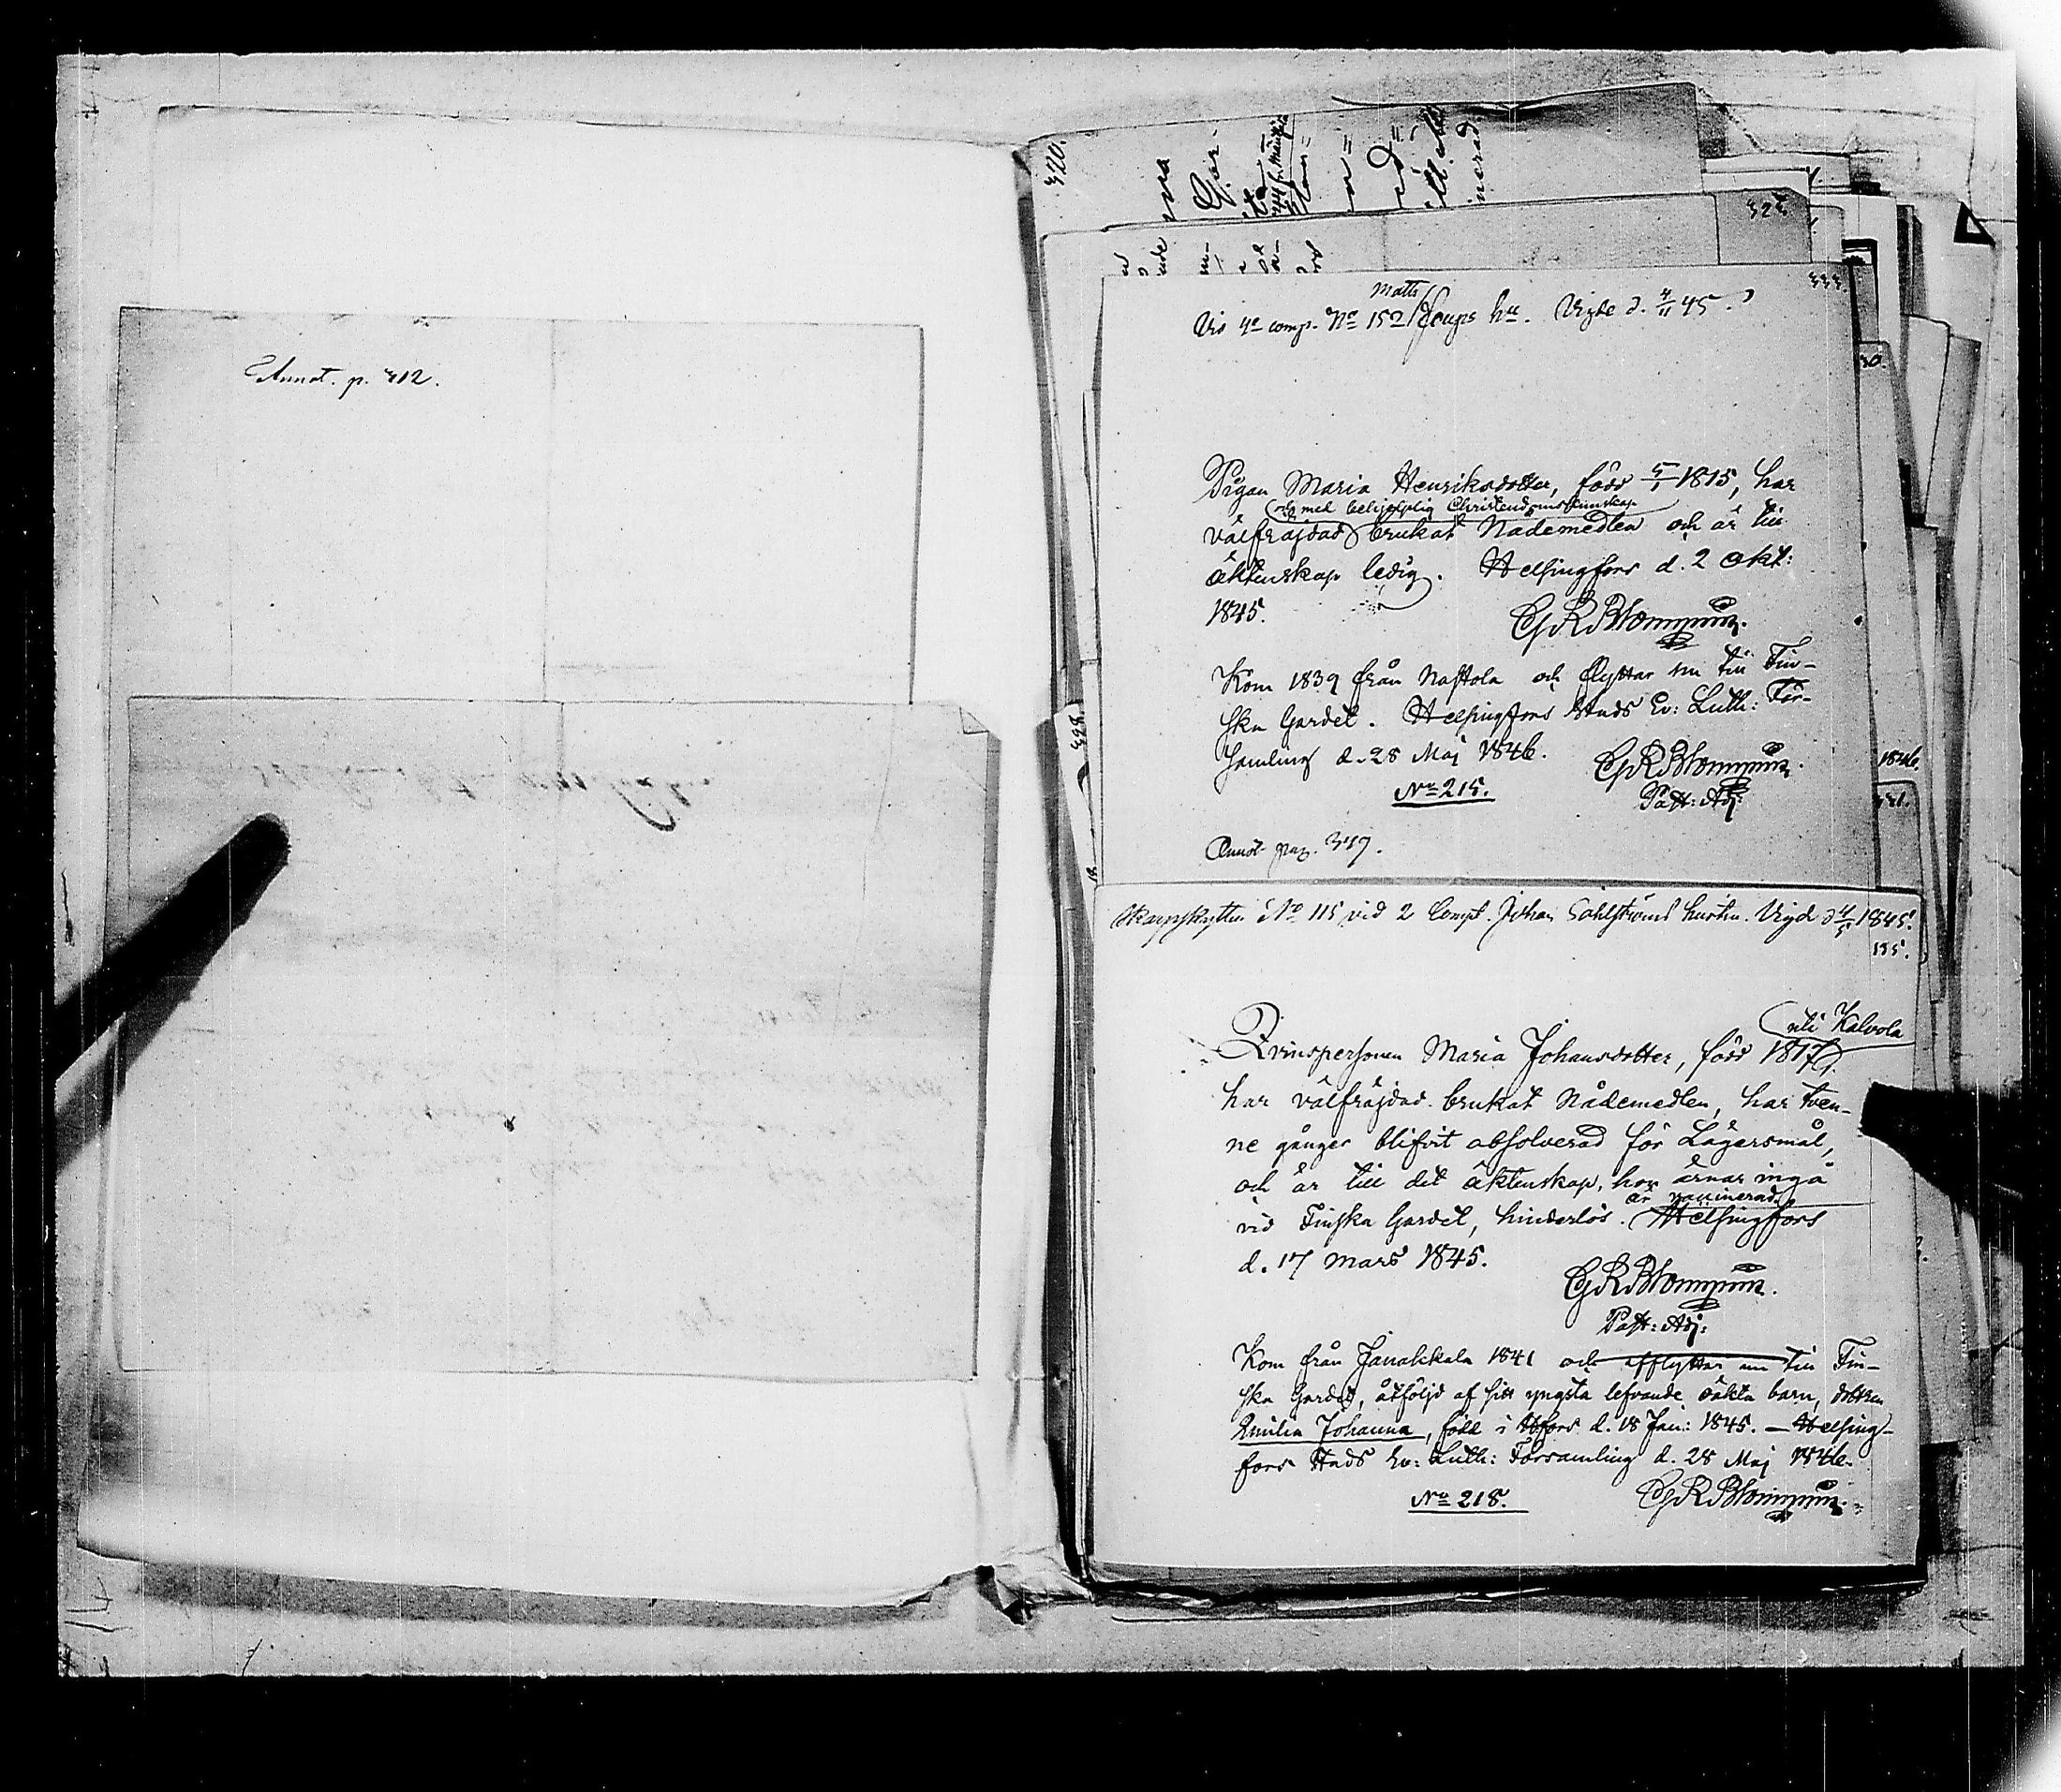 Annot. p. 312.
320.
327.
333.
Matts
Vid 4e comp. No 152 Joups hu. Vigde d. 4/11 45.
Pigan Maria Henriksdotter, född 5/1 1815, har
och med behjelplig Christendomskunskap
välfräjdad brukat Nådemedlen och är till
äktenskap ledig. Helsingfors d. 2 Okt:
1845.
G R Blomqvist.
Kom 1839 från Nastola och flyttar nu till Fin-
ska Gardet. Helsingfors Stads Ev: Luth: För-
samling d. 28 Maj 1846.
G R Blomqvist.
No 215.
Past: Adj:
Annot pag. 319.
1846.
331.
328.
Skarpskytten No 115 vid 2 Comp. Johan Sahlströms hustru. Vigd d 4/5 1845.
135.
uti Kalvola
Qvinspersonen Maria Johansdotter, född 1817,
har välfräjdad brukat Nådemedlen, har tven-
ne gånger blifvit absolverad för Lägersmål,
och är till det äktenskap, hon ärnar ingå
är vaccinerad
vid Finska Gardet, hinderlös. Helsingfors
d. 17 Mars 1845.
G R Blomqvist.
Past: Adj:
Kom från Janakkala 1841 och afflyttar nu till Fin-
ska Gardet, åtföljd af sitt yngsta lefvande oäkta barn, dottren
Emilia Johanna, född i Hfors d. 18 Jan: 1845. — Helsing-
fors Stads Ev: Luth: Församling d. 28 Maj 1846.
No 218.
G R Blomqvist.